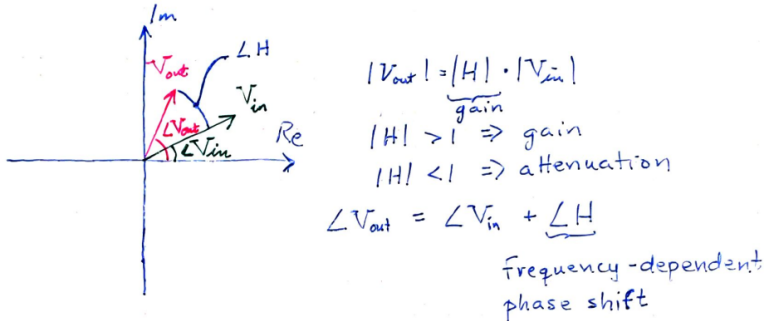 Im
∠H
Vout
Vin
∠Vout
Re
∠Vin
|Vout| = |H| · |Vin|
gain
|H| > 1 => gain
|H| < 1 => attenuation
∠Vout = ∠Vin + ∠H
frequency-dependent
phase shift